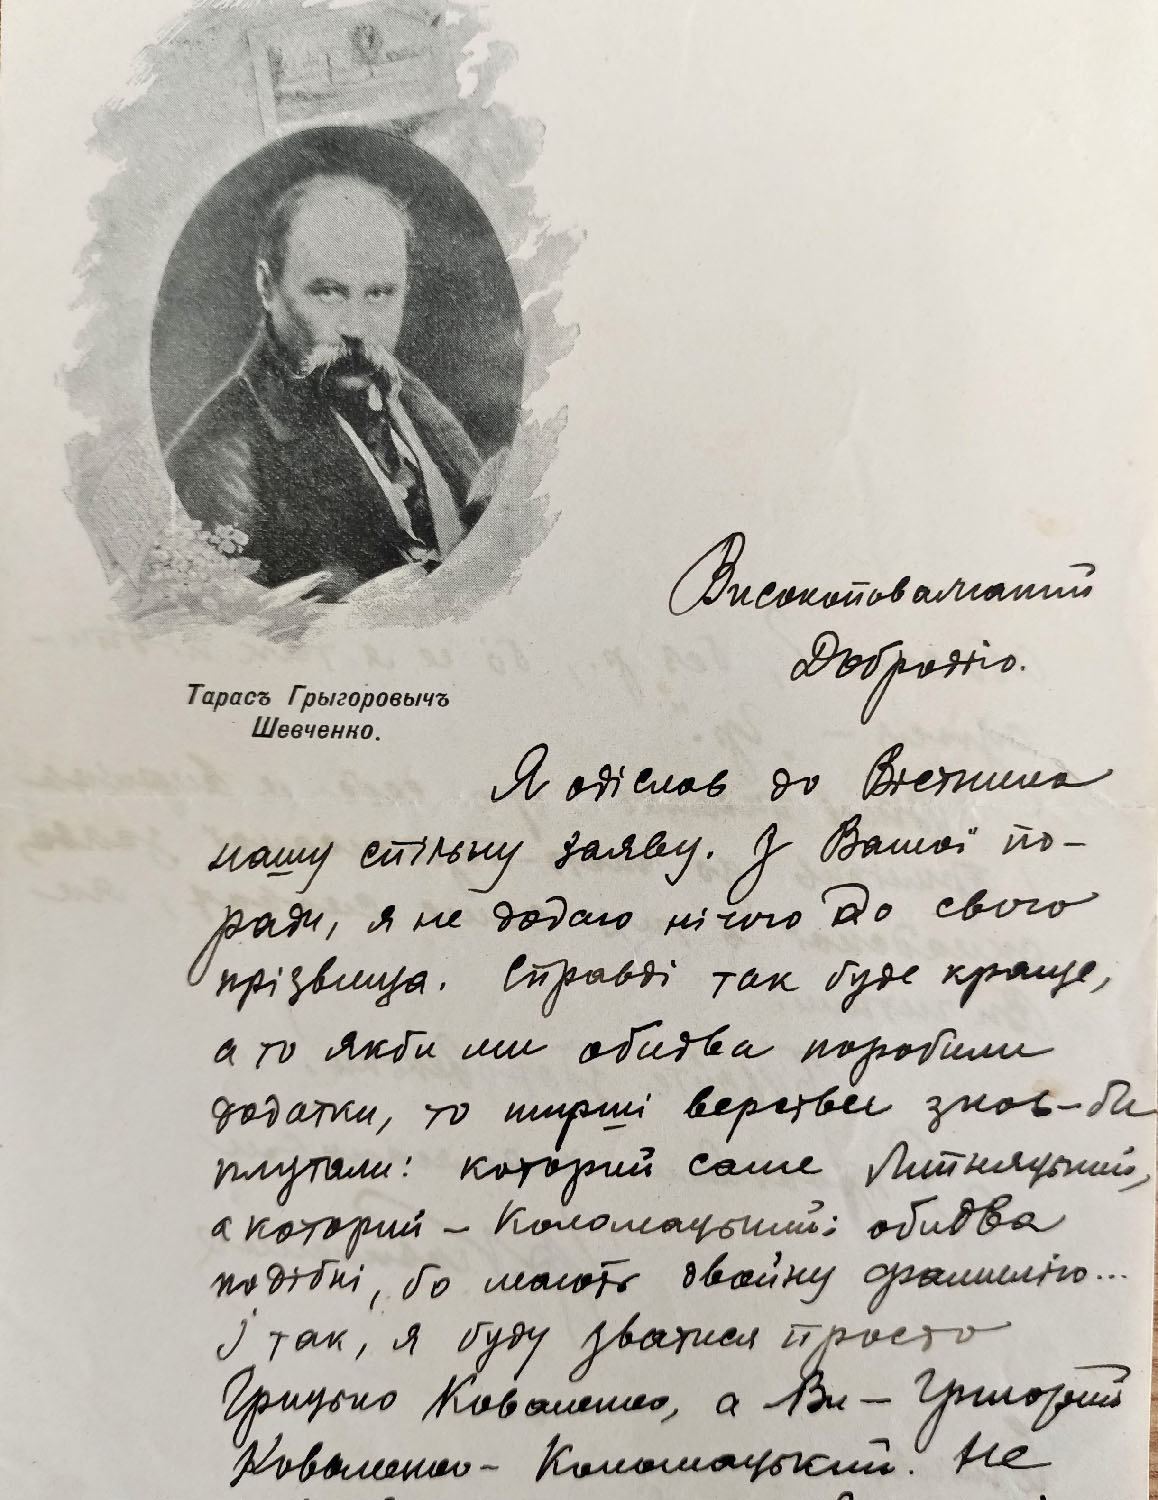 Тарасъ Грыгоровычъ
Шевченко.
Високоповажаний
Добродію.
Я одіслав до Вістника
нашу спільну заяву. З Вашої по-
ради, я не додаю нічого до свого
прізвища. Справді так буде краще,
а то якби ми обидва поробили
додатки, то ширші верстви знов-би
плутали: которий саме Липняцький,
а которий - Коломацький: обидва
подібні, бо мають двойну фамилію...
І так, я буду зватися просто
Грицько Коваленко, а Ви - Григорий
Коваленко-Коломацький. Не